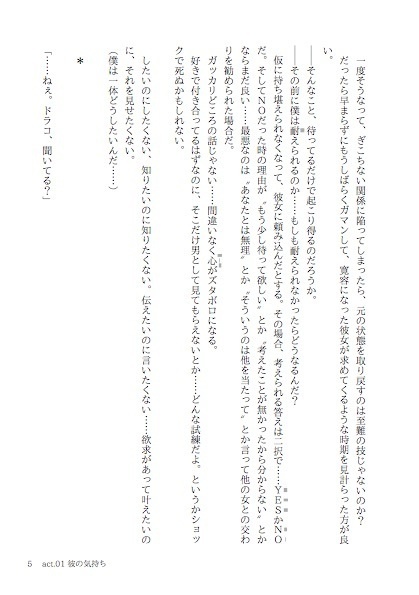 一度そうなって、ぎこちない関係に陥ってしまったら、元の状態を取り戻すのは至難の技じゃないのか？
だったら早まらずにもうしばらくガマンして、寛容になった彼女が求めてくるような時期を見計らった方が良
い。
――そんなこと、待ってるだけで起こり得るのだろうか。
――その前に僕は耐えられるのか……もしも耐えられなかったらどうなるんだ？
仮に持ち堪えられなくなって、彼女に頼み込んだとする。その場合、考えられる答えは二択で……ＹＥＳかＮＯ
だ。そしてＮＯだった時の理由が〝もう少し待って欲しい〟とか〝考えたことが無かったから分からない〟とか
ならまだ良い……最悪なのは〝あなたとは無理〟とか〝そういうのは他を当たって〟とか言って他の女との交わ
りを勧められた場合だ。
ガッカリどころの話じゃない……間違いなく心がズタボロになる。
好きで付き合ってるはずなのに、そこだけ男として見てもらえないとか……どんな試練だよ。というかショッ
クで死ぬかもしれない。
したいのにしたくない、知りたいのに知りたくない。伝えたいのに言いたくない……欲求があって叶えたいの
に、それを見せたくない。
（僕は一体どうしたいんだ……）
＊
「……ねぇ。ドラコ、聞いてる？」
5 act.01 彼の気持ち